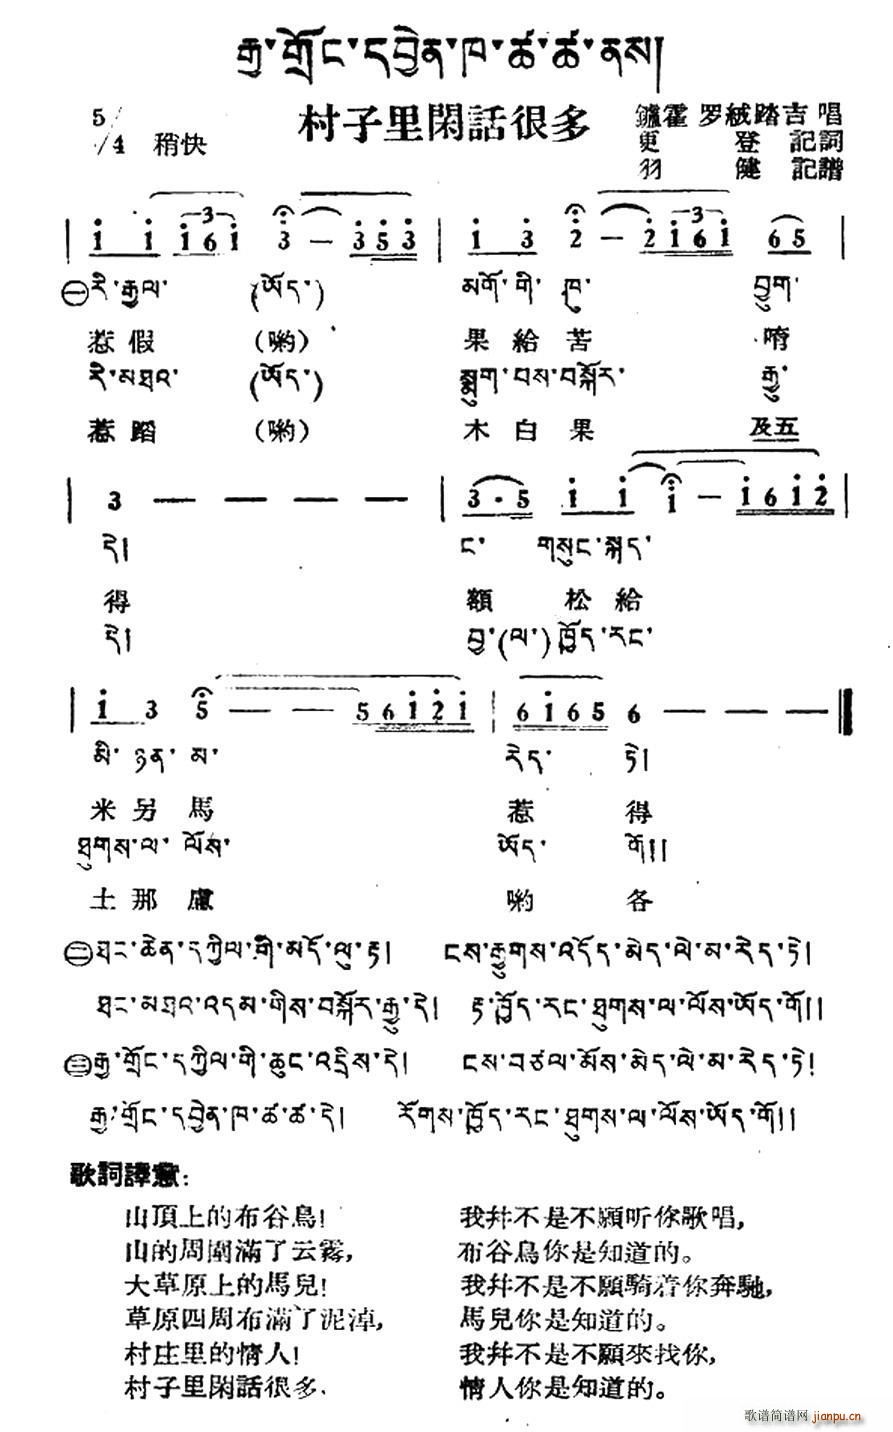 རྒྱ་གྲོང་དབྱེན་ཁ་ཚ་ཚ་ནས།
村子里閑話很多
鑪霍 罗絨踏吉 唱
更登 記詞
羽健 記譜
5/4 稍快
| 1 1 1 6 1 3 — 3 5 3 | 1 3 2 — 2 1 6 1 6 5 |
㊀རི་རྒྱལ་ (ཡོད་) མགོ་གི་ཁུ་ བྱུག་
惹假 (喲) 果給苦 唷
རི་མཐའ་ (ཡོད་) སྨུག་བས་བསྐོར་ རྒྱུ་
惹蹈 (喲) 木白果 及五
| 3 — — — — | 3 · 5 1 1 1 — 1 6 1 2 |
དེ། ང་ གསུང་སྐད་
得 額 松給
དེ། བྱ་(ལ་)ཁྱོད་རང་
| 1 3 5 — — 5 6 1 2 1 | 6 1 6 5 6 — — — ‖
མི་ ཉན་ མ་ རེད་ ཏེ།
米另馬 惹 得
ཐུགས་ལ་ ལོས་ ཡོད་ གོ།།
土那慮 喲 各
㊁ཐང་ཆེན་དཀྱིལ་གི་མདོ་ལུ་རྟ། ངས་རྒྱུགས་འདོད་མེད་ལེ་མ་རེད་ཏེ།
ཐང་མཐའ་འདམ་གིས་བསྐོར་རྒྱུ་དེ། རྟ་ཁྱོད་རང་ཐུགས་ལ་ལོས་ཡོད་གོ།།
㊂རྒྱ་གྲོང་དཀྱིལ་གི་ཆུང་འདྲིས་དེ། ངས་བཙལ་མོས་མེད་ལེ་མ་རེད་ཏེ།
རྒྱ་གྲོང་དབྱེན་ཁ་ཚ་ཚ་དེ། རོགས་ཁྱོད་རང་ཐུགས་ལ་ལོས་ཡོད་གོ།།
歌詞譯意:
山頂上的布谷鳥! 我幷不是不願听你歌唱,
山的周圍滿了云霧, 布谷鳥你是知道的。
大草原上的馬兒! 我幷不是不願騎着你奔馳,
草原四周布滿了泥淖, 馬兒你是知道的。
村庄里的情人! 我幷不是不願來找你,
村子里閑話很多, 情人你是知道的。
歌谱简谱网 jianpu.cn